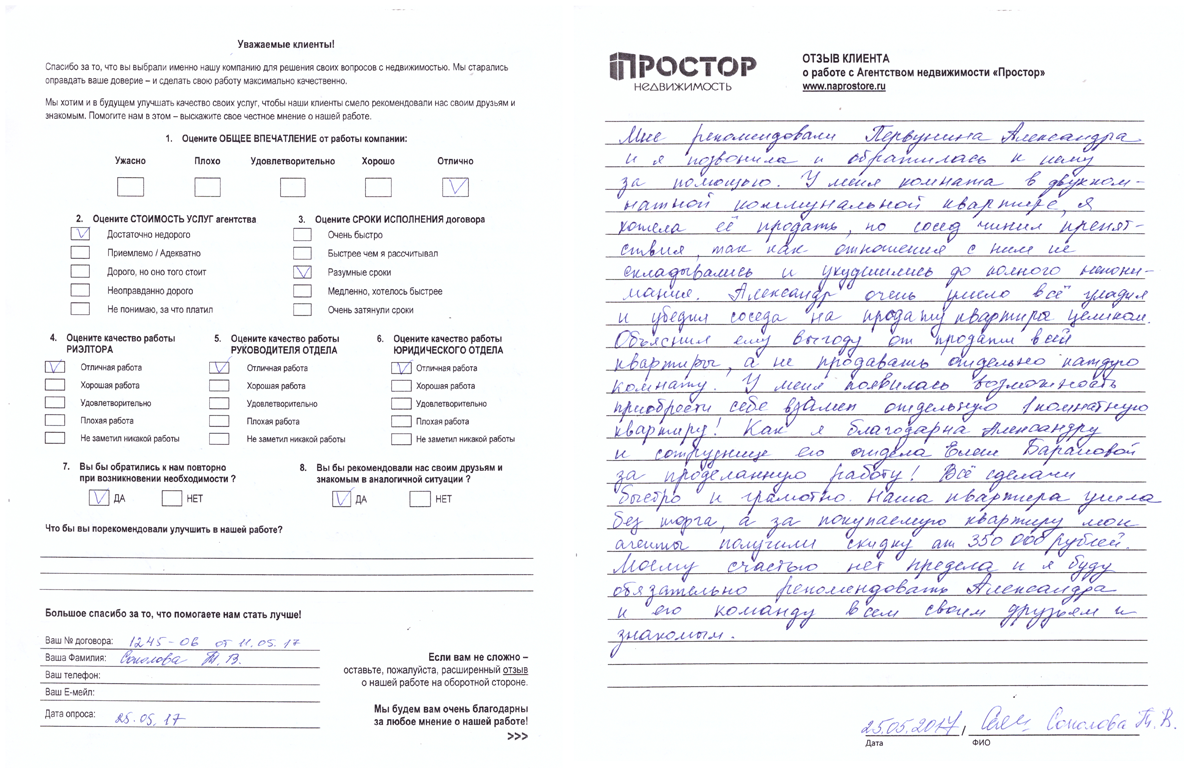 Уважаемые клиенты!
Спасибо за то, что вы выбрали именно нашу компанию для решения своих вопросов с недвижимостью. Мы старались
оправдать ваше доверие – и сделать свою работу максимально качественно.
Мы хотим и в будущем улучшать качество своих услуг, чтобы наши клиенты смело рекомендовали нас своим друзьям и
знакомым. Помогите нам в этом – выскажите свое честное мнение о нашей работе.
1. Оцените ОБЩЕЕ ВПЕЧАТЛЕНИЕ от работы компании:
Ужасно Плохо Удовлетворительно Хорошо Отлично
2. Оцените СТОИМОСТЬ УСЛУГ агентства
Достаточно недорого
Приемлемо / Адекватно
Дорого, но оно того стоит
Неоправданно дорого
Не понимаю, за что платил
3. Оцените СРОКИ ИСПОЛНЕНИЯ договора
Очень быстро
Быстрее чем я рассчитывал
Разумные сроки
Медленно, хотелось быстрее
Очень затянули сроки
4. Оцените качество работы
РИЭЛТОРА
Отличная работа
Хорошая работа
Удовлетворительно
Плохая работа
Не заметил никакой работы
5. Оцените качество работы
РУКОВОДИТЕЛЯ ОТДЕЛА
Отличная работа
Хорошая работа
Удовлетворительно
Плохая работа
Не заметил никакой работы
6. Оцените качество работы
ЮРИДИЧЕСКОГО ОТДЕЛА
Отличная работа
Хорошая работа
Удовлетворительно
Плохая работа
Не заметил никакой работы
7. Вы бы обратились к нам повторно
при возникновении необходимости ?
ДА НЕТ
8. Вы бы рекомендовали нас своим друзьям и
знакомым в аналогичной ситуации ?
ДА НЕТ
Что бы вы порекомендовали улучшить в нашей работе?
Большое спасибо за то, что помогаете нам стать лучше!
Ваш № договора: 1245-ОВ от 11.05.17
Ваша Фамилия: Соколова Т. В.
Ваш телефон:
Ваш E-мейл:
Дата опроса: 25.05.17
Если вам не сложно –
оставьте, пожалуйста, расширенный отзыв
о нашей работе на оборотной стороне.
Мы будем вам очень благодарны
за любое мнение о нашей работе!
>>>
ПРОСТОР
НЕДВИЖИМОСТЬ
ОТЗЫВ КЛИЕНТА
о работе с Агентством недвижимости «Простор»
www.naprostore.ru
Мне рекомендовали Первунина Александра
и я позвонила и обратилась к нему
за помощью. У меня комната в двухком-
натной коммунальной квартире, я
хотела её продать, но сосед чинил препят-
ствия, так как отношения с ним не
складывались и ухудшились до полного непони-
мания. Александр очень умело всё уладил
и убедил соседа на продажу квартиры целиком.
Объяснил ему выгоду от продажи всей
квартиры, а не продавать отдельно каждую
комнату. У меня появилась возможность
приобрести себе взамен отдельную 1комнатную
квартиру! Как я благодарна Александру
и сотруднице его отдела Елене Барамовой
за проделанную работу! Всё сделали
быстро и грамотно. Наша квартира ушла
без торга, а за покупаемую квартиру мои
агенты получили скидку аж 350 000 рублей.
Моему счастью нет предела и я буду
обязательно рекомендовать Александра
и его команду всем своим друзьям и
знакомым.
25.05.2017 / Соколова Т. В.
Дата ФИО